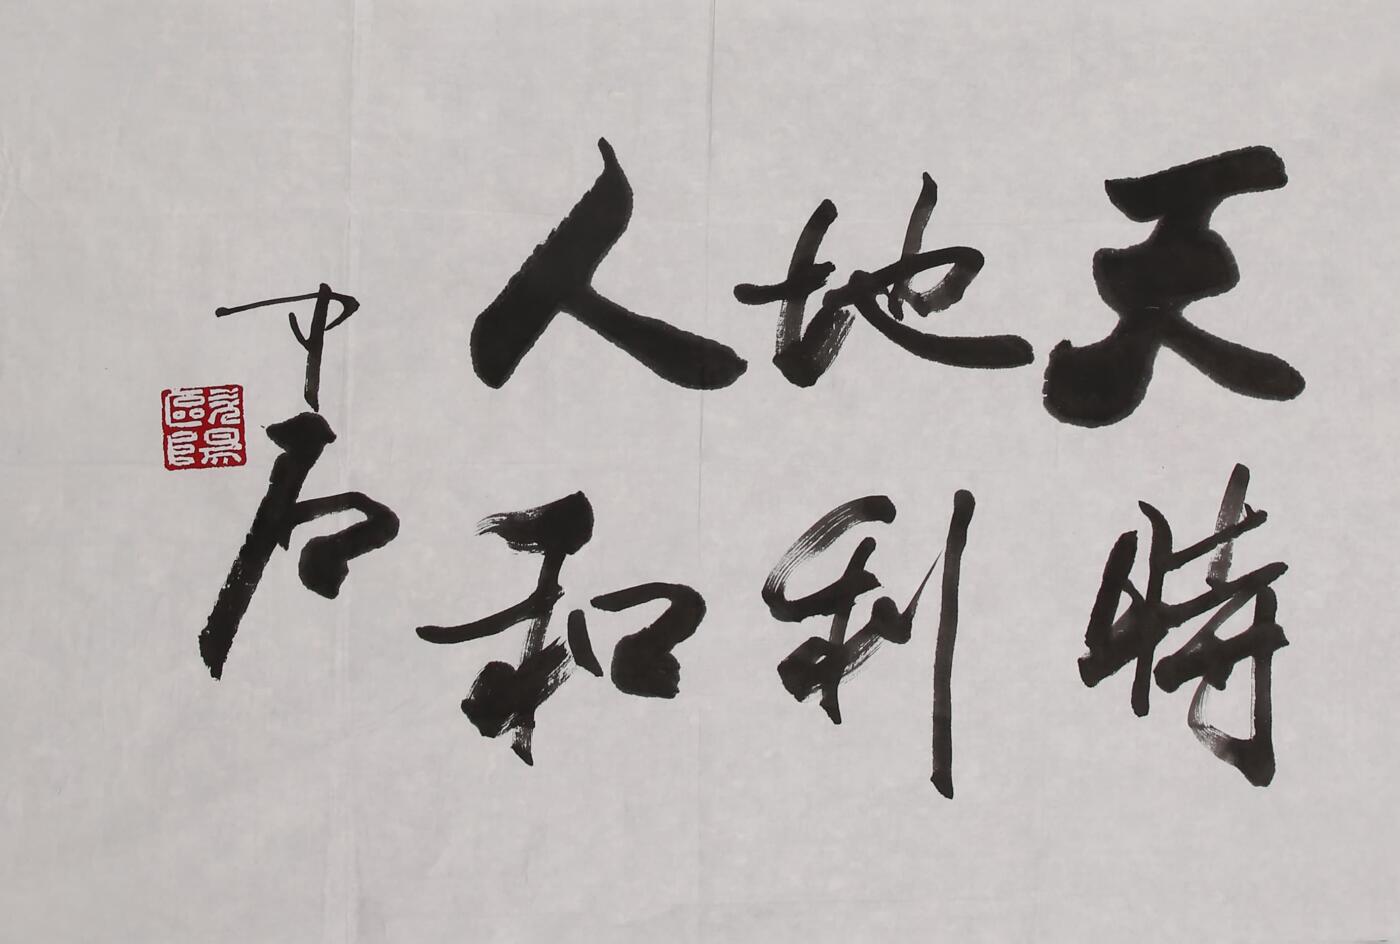 天時
地利
人和
中石